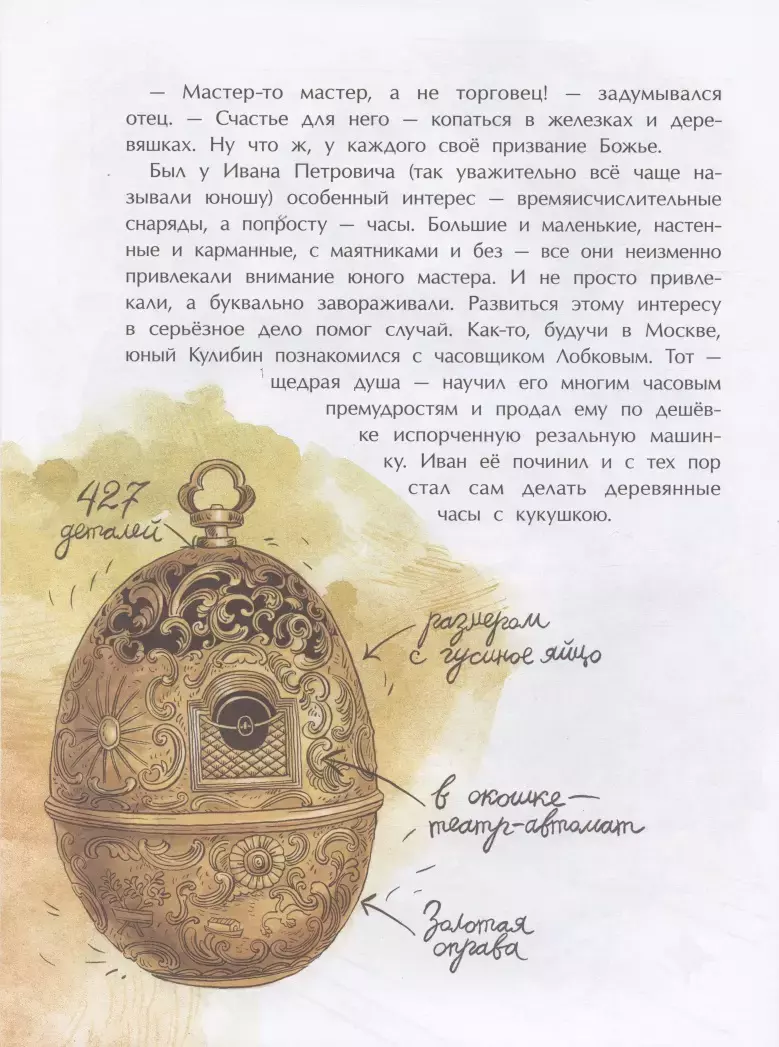 — Мастер-то мастер, а не торговец! — задумывался
отец. — Счастье для него — копаться в железках и дере-
вяшках. Ну что ж, у каждого своё призвание Божье.
Был у Ивана Петровича (так уважительно всё чаще на-
зывали юношу) особенный интерес — времяисчислительные
снаряды, а попросту — часы. Большие и маленькие, настен-
ные и карманные, с маятниками и без — все они неизменно
привлекали внимание юного мастера. И не просто привле-
кали, а буквально завораживали. Развиться этому интересу
в серьёзное дело помог случай. Как-то, будучи в Москве,
юный Кулибин познакомился с часовщиком Лобковым. Тот —
щедрая душа — научил его многим часовым
премудростям и продал ему по дешёв-
ке испорченную резальную машин-
ку. Иван её починил и с тех пор
стал сам делать деревянные
часы с кукушкою.
427
деталей
размером
с гусиное яйцо
в окошке —
театр-автомат
Золотая
оправа